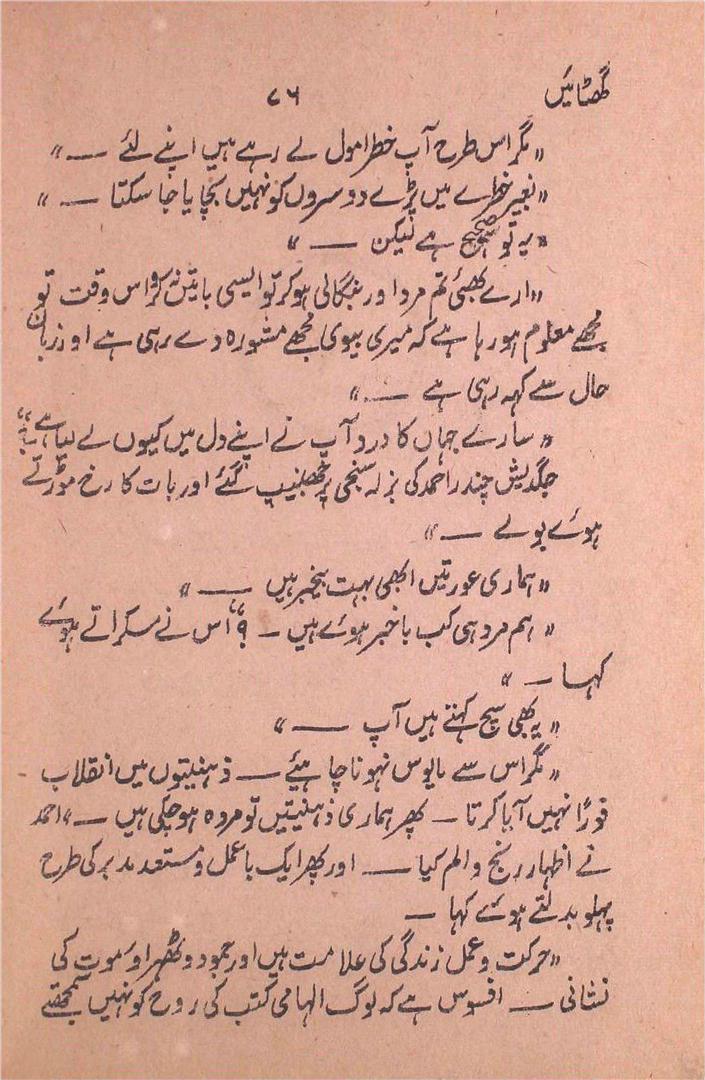 گھٹائیں ۷۶
"مگر اس طرح آپ خطرا مول لے رہے ہیں اپنے لئے ــــ"
"بغیر خطرے میں پڑے دوسروں کو نہیں بچایا جا سکتا ــــ"
"یہ تو صحیح ہے لیکن ــــ"
"ارے بھئی تم مرد اور بنگالی ہو کر تو ایسی باتیں نہ کرو اس وقت تو
مجھے معلوم ہو رہا ہے کہ میری بیوی مجھے مشورہ دے رہی ہے اور زبان
حال سے کہہ رہی ہے ــــ"
"سارے جہاں کا درد آپ نے اپنے دل میں کیوں لے لیا ہے"
جگدیش چندر احمد کی بزلہ سنجی پر جھینپ گئے اور بات کا رخ موڑتے
ہوئے بولے ــــ"
"ہماری عورتیں ابھی بہت بیخبر ہیں ــــ"
"ہم مرد ہی کب باخبر ہوئے ہیں ــ؟" اس نے مسکراتے ہوئے
کہا ــ"
"یہ بھی سچ کہتے ہیں آپ ــــ"
"مگر اس سے مایوس نہونا چاہیئے ــــ ذہنیتوں میں انقلاب
فورًا نہیں آیا کرتا ــ پھر ہماری ذہنیتیں تو مردہ ہو چکی ہیں ــ" احمد
نے اظہار رنج و الم کیا ــــ اور پھر ایک باعمل و مستعد مدبر کی طرح
پہلو بدلتے ہوئے کہا ــ
"حرکت و عمل زندگی کی علامت ہیں اور جمود و ٹھہراؤ موت کی
نشانی ــــ افسوس ہے کہ لوگ الہامی کتب کی روح کو نہیں سمجھتے